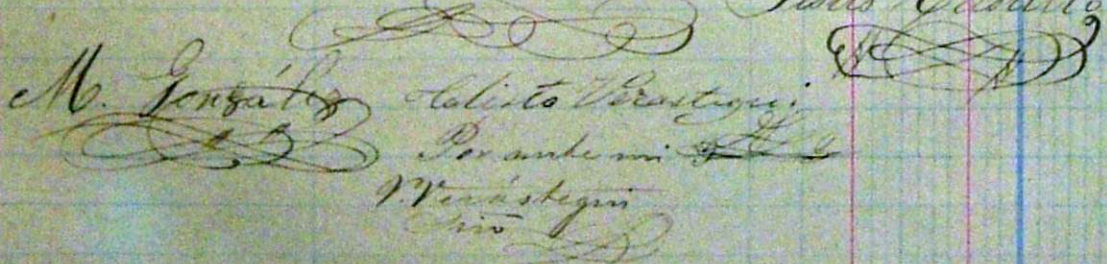 M. González
Calisto Verastegui
Por ante mi
V. Verástegui
Srio